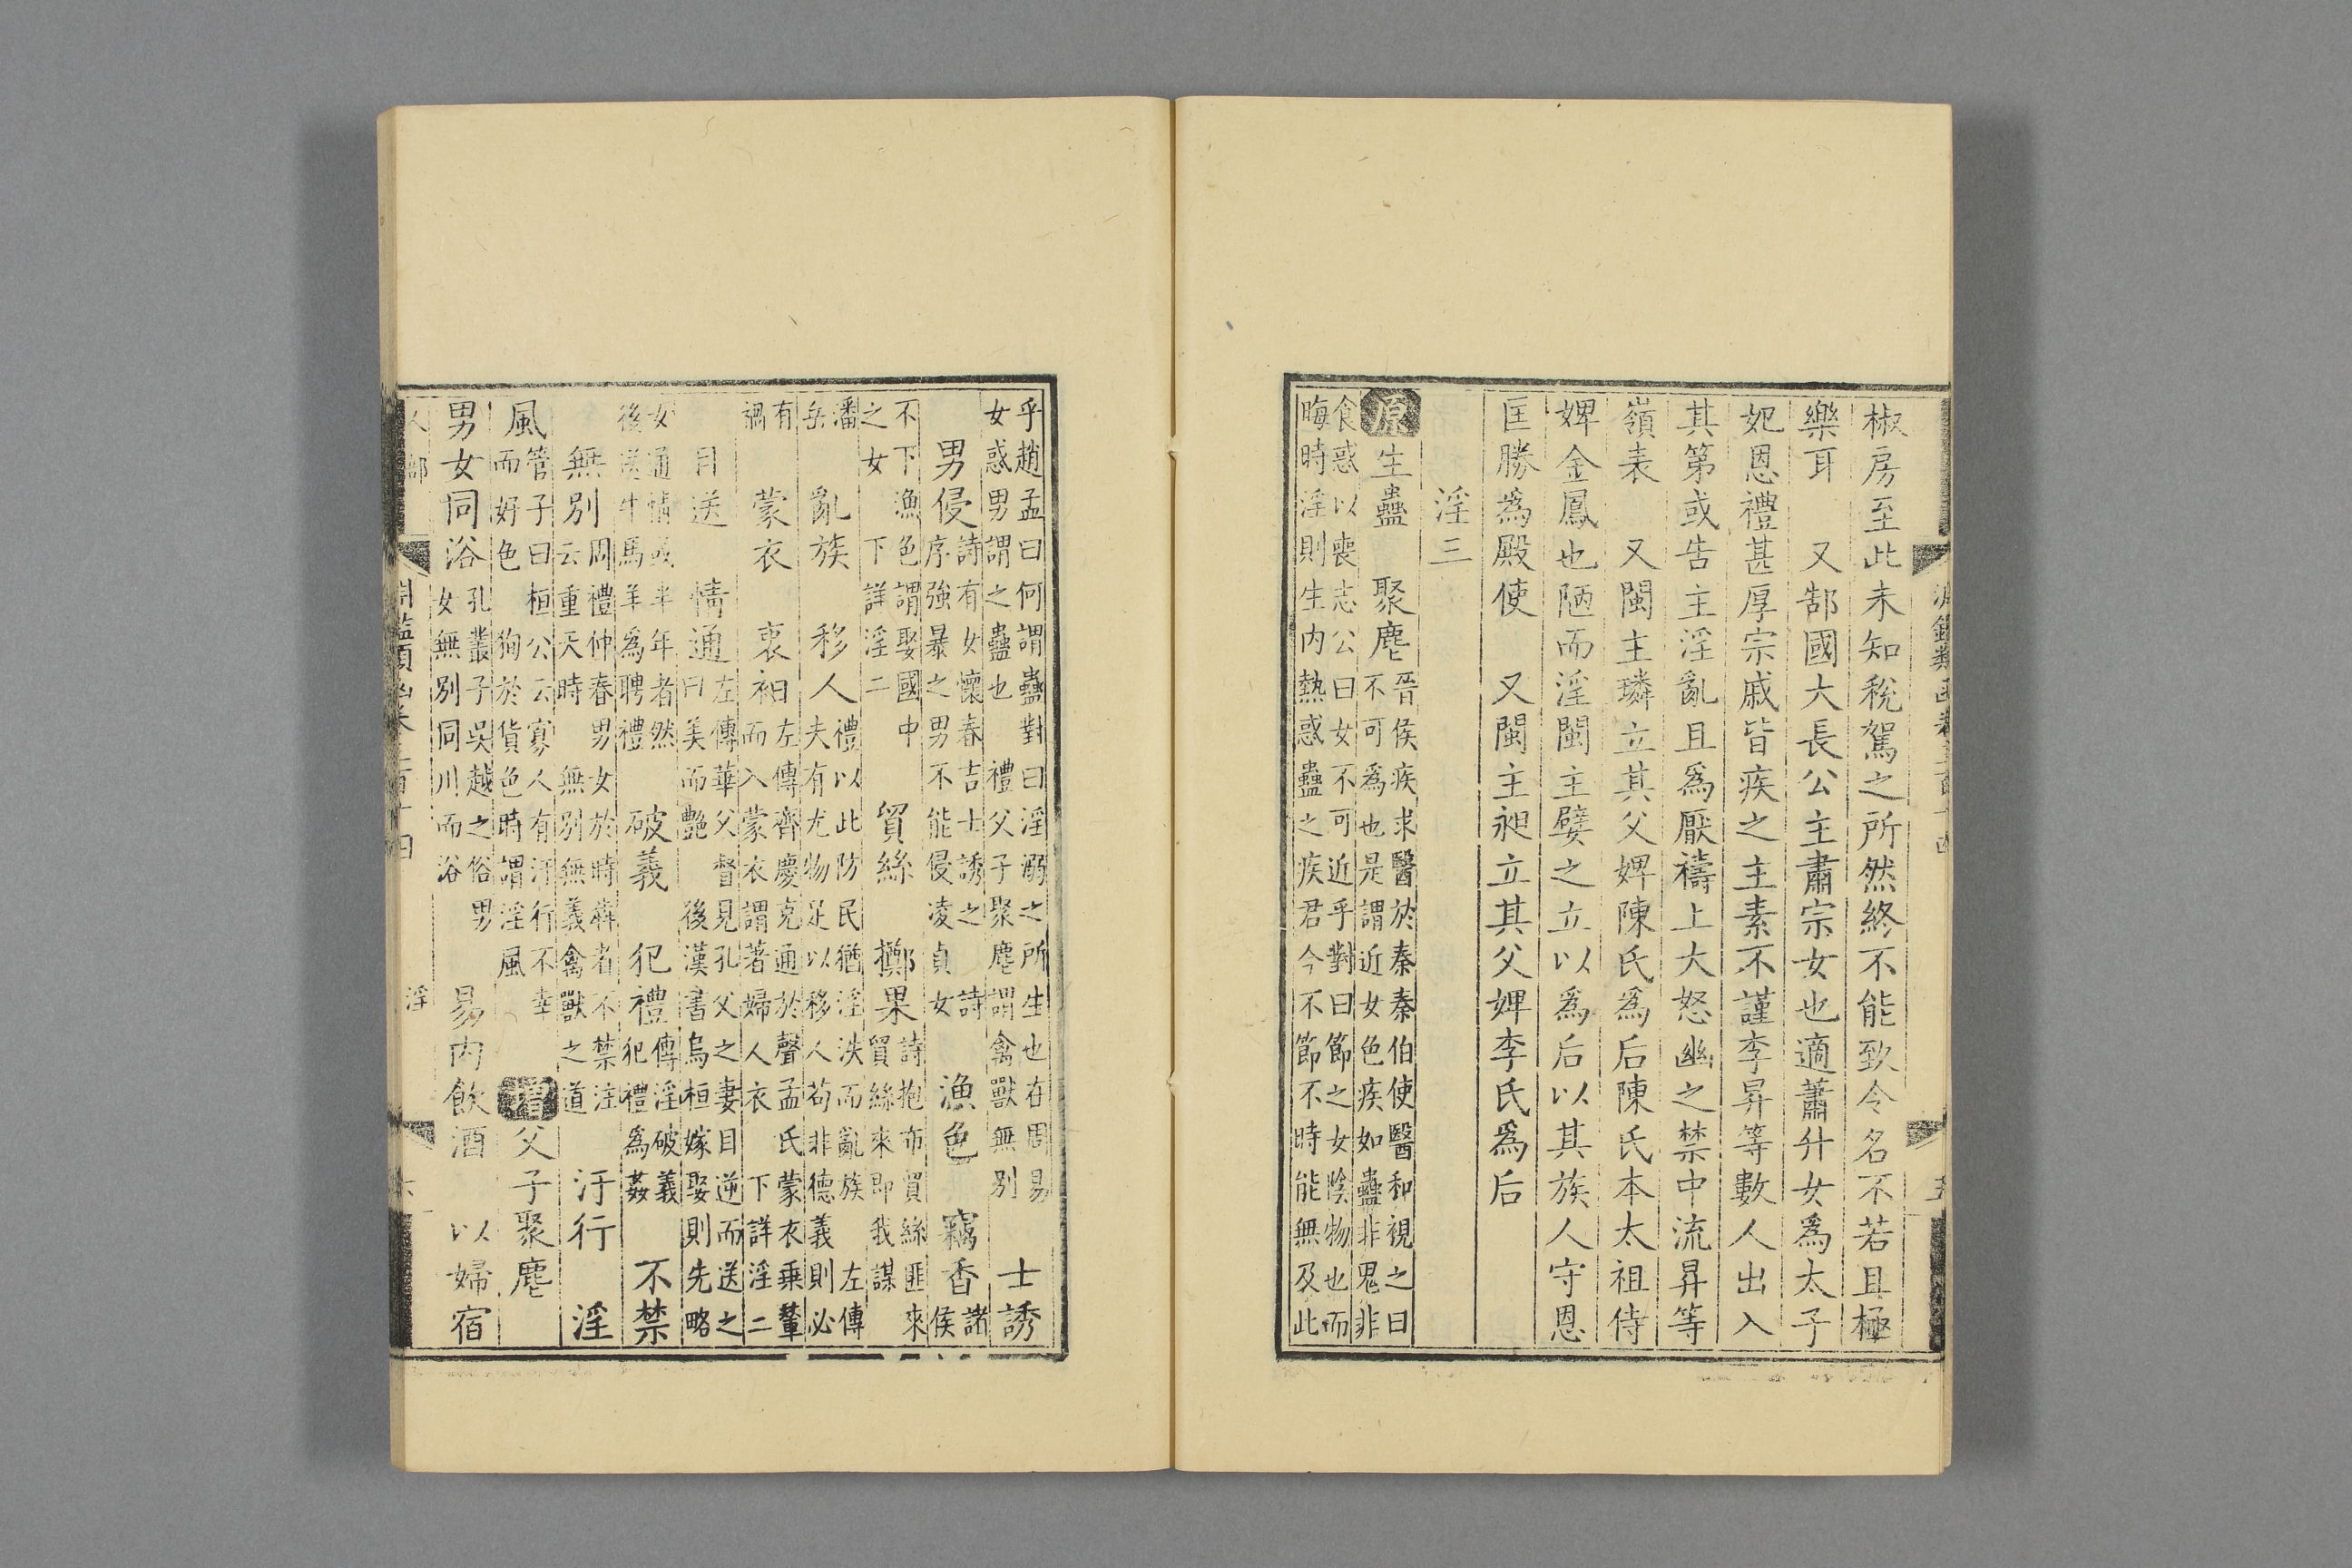 椒房至此未知稅駕之所然終不能致令名不若且極
樂耳　又郜國大長公主肅宗女也適蕭升女爲太子
妃恩禮甚厚宗戚皆疾之主素不謹李昇等數人出入
其第或告主淫亂且爲厭禱上大怒幽之禁中流昇等
嶺表　又閩主璘立其父婢陳氏爲后陳氏本太祖侍
婢金鳳也陋而淫閩主嬖之立以爲后以其族人守恩
匡勝爲殿使　又閩主昶立其父婢李氏爲后
淫三
原生蠱　聚麀晉侯疾求醫於秦秦伯使醫和視之曰
不可爲也是謂近女色疾如蠱非鬼非
食惑以喪志公曰女不可近乎對曰節之女陰物也而
晦時淫則生内熱惑蠱之疾君今不節不時能無及此
乎趙孟曰何謂蠱對曰淫溺之所生也在周易
女惑男謂之蠱也　禮父子聚麀謂禽獸無別　士誘
男侵詩有女懷春吉士誘之　詩
序強暴之男不能侵凌貞女　漁色　竊香諸
侯
不下漁色謂娶國中
之女　下詳淫二　貿絲　擲果詩抱布貿絲匪來
貿絲來即我謀
潘
岳　亂族　移人禮以此防民猶淫泆而亂族　左傳
夫有尤物足以移人苟非德義則必
有
禍　蒙衣　衷衵左傳齊慶克通於聲孟氏蒙衣乗輦
而入蒙衣謂著婦人衣　下詳淫二
目送　情通左傳華父督見孔父之妻目逆而送之
曰美而艷　後漢書烏桓嫁娶則先略
女通情或半年者然
後送牛馬羊爲聘禮　破義　犯禮傳淫破義
犯禮爲姦　不禁
無別周禮仲春男女於時犇者不禁注
云重天時　無別無義禽獸之道　汙行　淫
風管子曰桓公云寡人有汙行不幸
而好色　狥於貨色時謂淫風　增父子聚麀
男女同浴孔叢子吳越之俗男
女無別同川而浴　易内飲酒　以婦宿
人部
淫